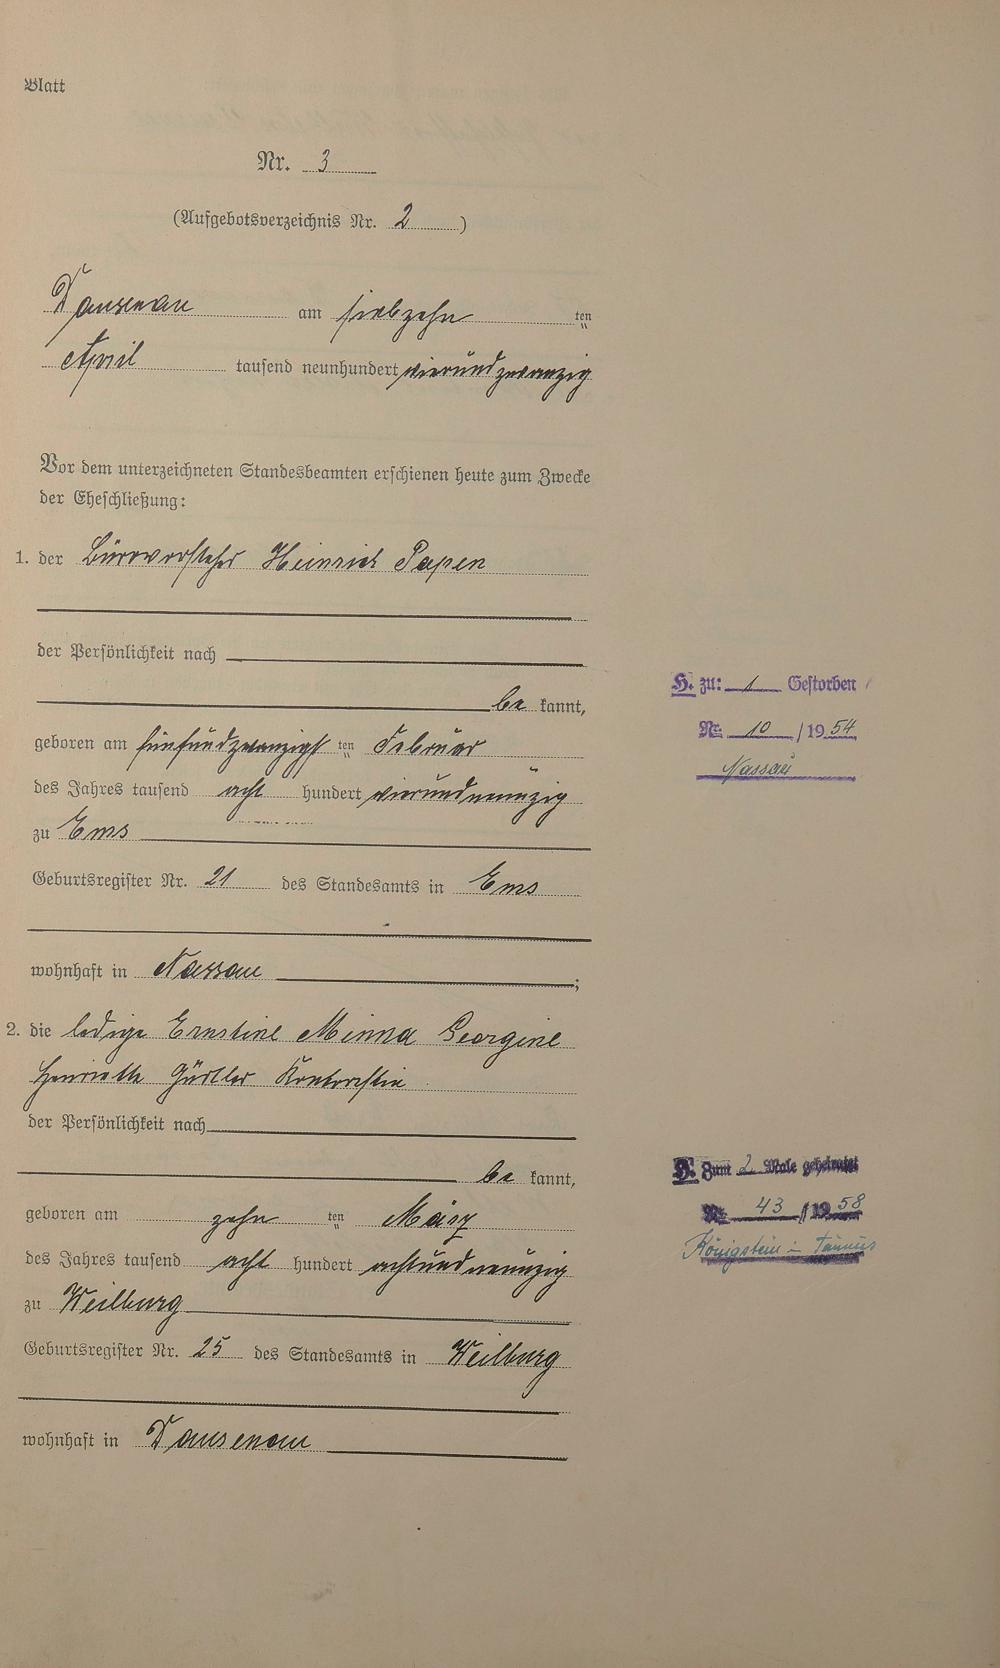 Blatt
Nr. 3
(Aufgebotsverzeichnis Nr. 2 )
Dausenau am siebzehn ten
April tausend neunhundert vierundzwanzig
Vor dem unterzeichneten Standesbeamten erschienen heute zum Zwecke
der Eheschließung:
1. der Bürovorsteher Heinrich Papen
der Persönlichkeit nach
be kannt,
geboren am fünfundzwanzigst ten Februar
des Jahres tausend acht hundert vierundneunzig
zu Ems
Geburtsregister Nr. 21 des Standesamts in Ems
wohnhaft in Nassau ;
2. die ledige Ernstine Minna Georgine
Henriette Gürtler Kontoristin
der Persönlichkeit nach
be kannt,
geboren am zehn ten März
des Jahres tausend acht hundert achtundneunzig
zu Weilburg
Geburtsregister Nr. 25 des Standesamts in Weilburg
wohnhaft in Dausenau
H. zu: 1 Gestorben
Nr. 10 / 19 54
Nassau
H. Zum 2 Male geheiratet
Nr. 43 / 19 58
Königstein - Taunus